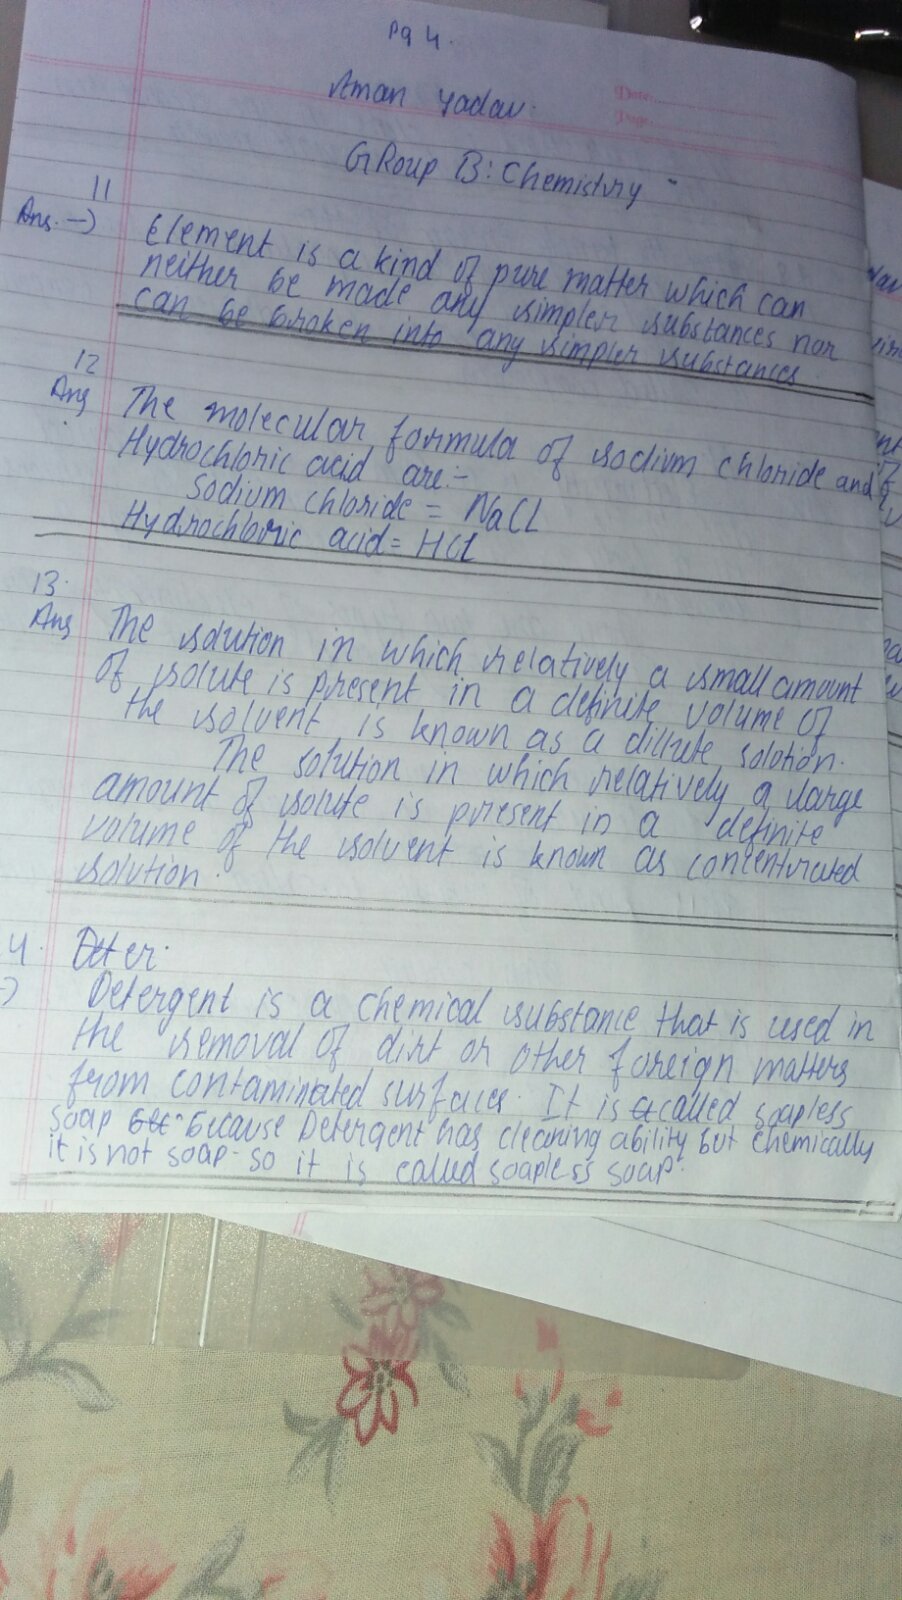 Pg 4.
Aman Yadav.
Date:
Page:
GRoup B: Chemistry
11
Ans. →) Element is a kind of pure matter which can
neither be made any simpler substances nor
can be broken into any simpler substances
12
Ans The molecular formula of sodium chloride and
Hydrochloric acid are:-
sodium chloride = NaCl
Hydrochloric acid = HCl
13.
Ans The solution in which relatively a small amount
of solute is present in a definite volume of
the solvent is known as a dillute solotion.
The solution in which relatively a large
amount of solute is present in a definite
volume of the solvent is known as concentrated
solution.
4. Deter.
→) Detergent is a chemical substance that is used in
the removal of dirt or other foreign matters
from contaminated surfaces. It is called soapless
soap because Detergent has cleaning ability but chemically
it is not soap. so it is called soapless soap.